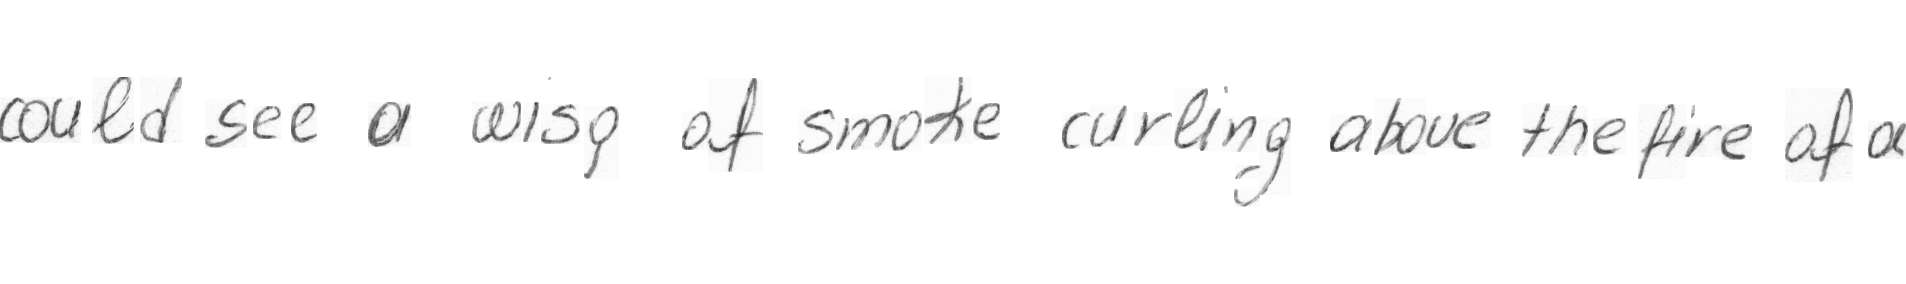 could see a wisp of smoke curling above the fire of a